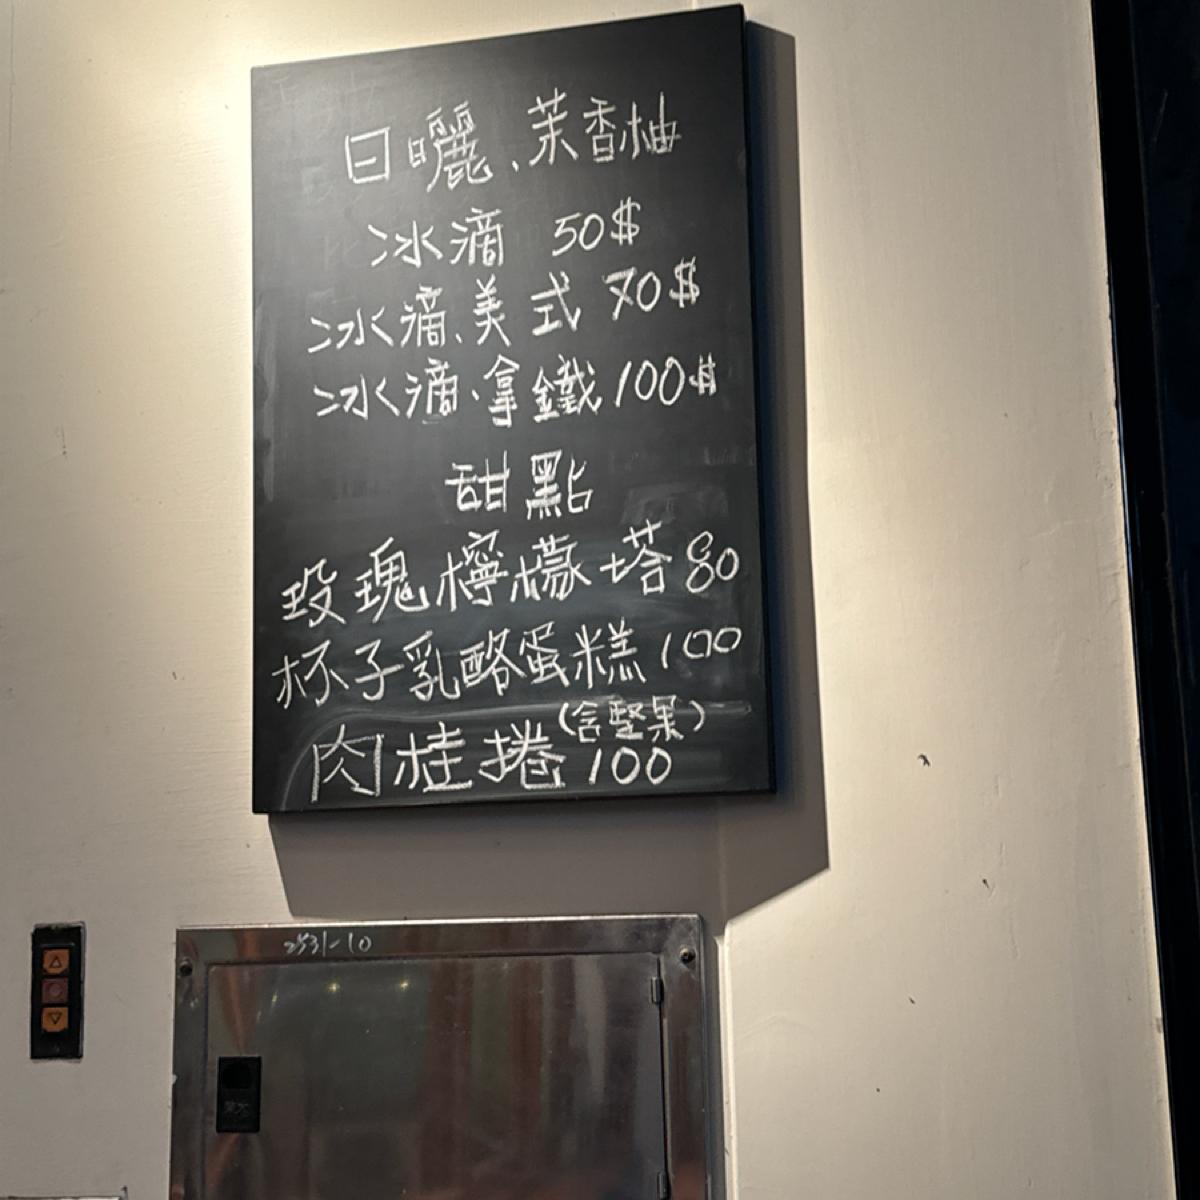 日曬、茉香柚
冰滴 50$
冰滴、美式 70$
冰滴、拿鐵 100$
甜點
玫瑰檸檬塔 80
杯子乳酪蛋糕 100
(含堅果)
肉桂捲 100
2531-10